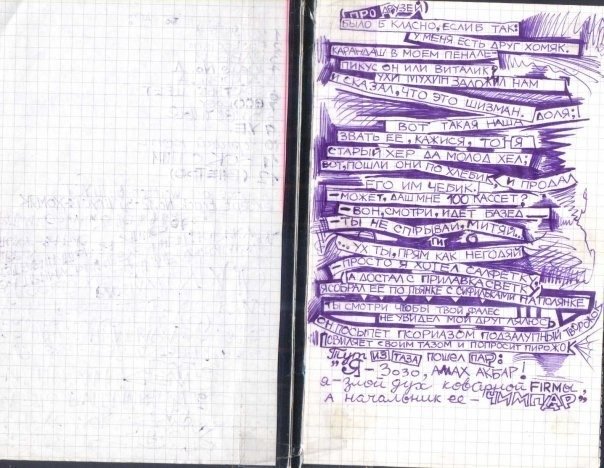 (ПРО ДРУЗЕЙ)
БЫЛО Б КЛАСНО, ЕСЛИ Б ТАК:
У МЕНЯ ЕСТЬ ДРУГ ХОМЯК.
КАРАНДАШ В МОЕМ ПЕНАЛЕ-
ПИКУС ОН ИЛИ ВИТАЛИК?
УХИ МУХИН ЗАЛОЖИЛ НАМ
И СКАЗАЛ, ЧТО ЭТО ШИЗМАН.
ВОТ ТАКАЯ НАША ДОЛЯ;!
ЗВАТЬ ЕЕ, КАЖИСЯ, ТОНЯ
СТАРЫЙ ХЕР ДА МОЛОД ХЕЛ;
ВОТ, ПОШЛИ ОНИ ПО ХЛЕБИК, И ПРОДАЛ
ЕГО ИМ ЧЕБИК.
-МОЖЕТ, ДАШ МНЕ 100 КАССЕТ?
-ВОН, СМОТРИ, ИДЕТ БАЗЕД
-ТЫ НЕ СПРЫВАЙ, МИТЯЙ
...УХ ТЫ, ПРЯМ КАК НЕГОДЯЙ
-ПРОСТО Я ХОТЕЛ САЛФЕТКУ,
А ДОСТАЛ С ПРИЛАВКА СВЕТКУ
Я СОБРАЛ ЕЕ ПО ПЬЯНКЕ С НА ПОЛЯНКЕ
ТЫ СМОТРИ ЧТОБЫ ТВОЙ ФАЛЕС
НЕ УВИДЕЛ МОЙ ДРУГ
ОН ПОСЫПЕТ ПСОРИАЗОМ ПОДЗАЛУПНЫЙ ТВОРОЖОК
ПОВИЛЯЕТ СВОИМ ТАЗОМ И ПОПРОСИТ ПИРОЖОК
Тут ИЗ ТАЗА ПОШЕЛ ПАР:
"Я - Зозо, АМАХ АКБАР!
Я - злой дух коварной FIRMы,
А начальник ее - ЧИМПУАР"